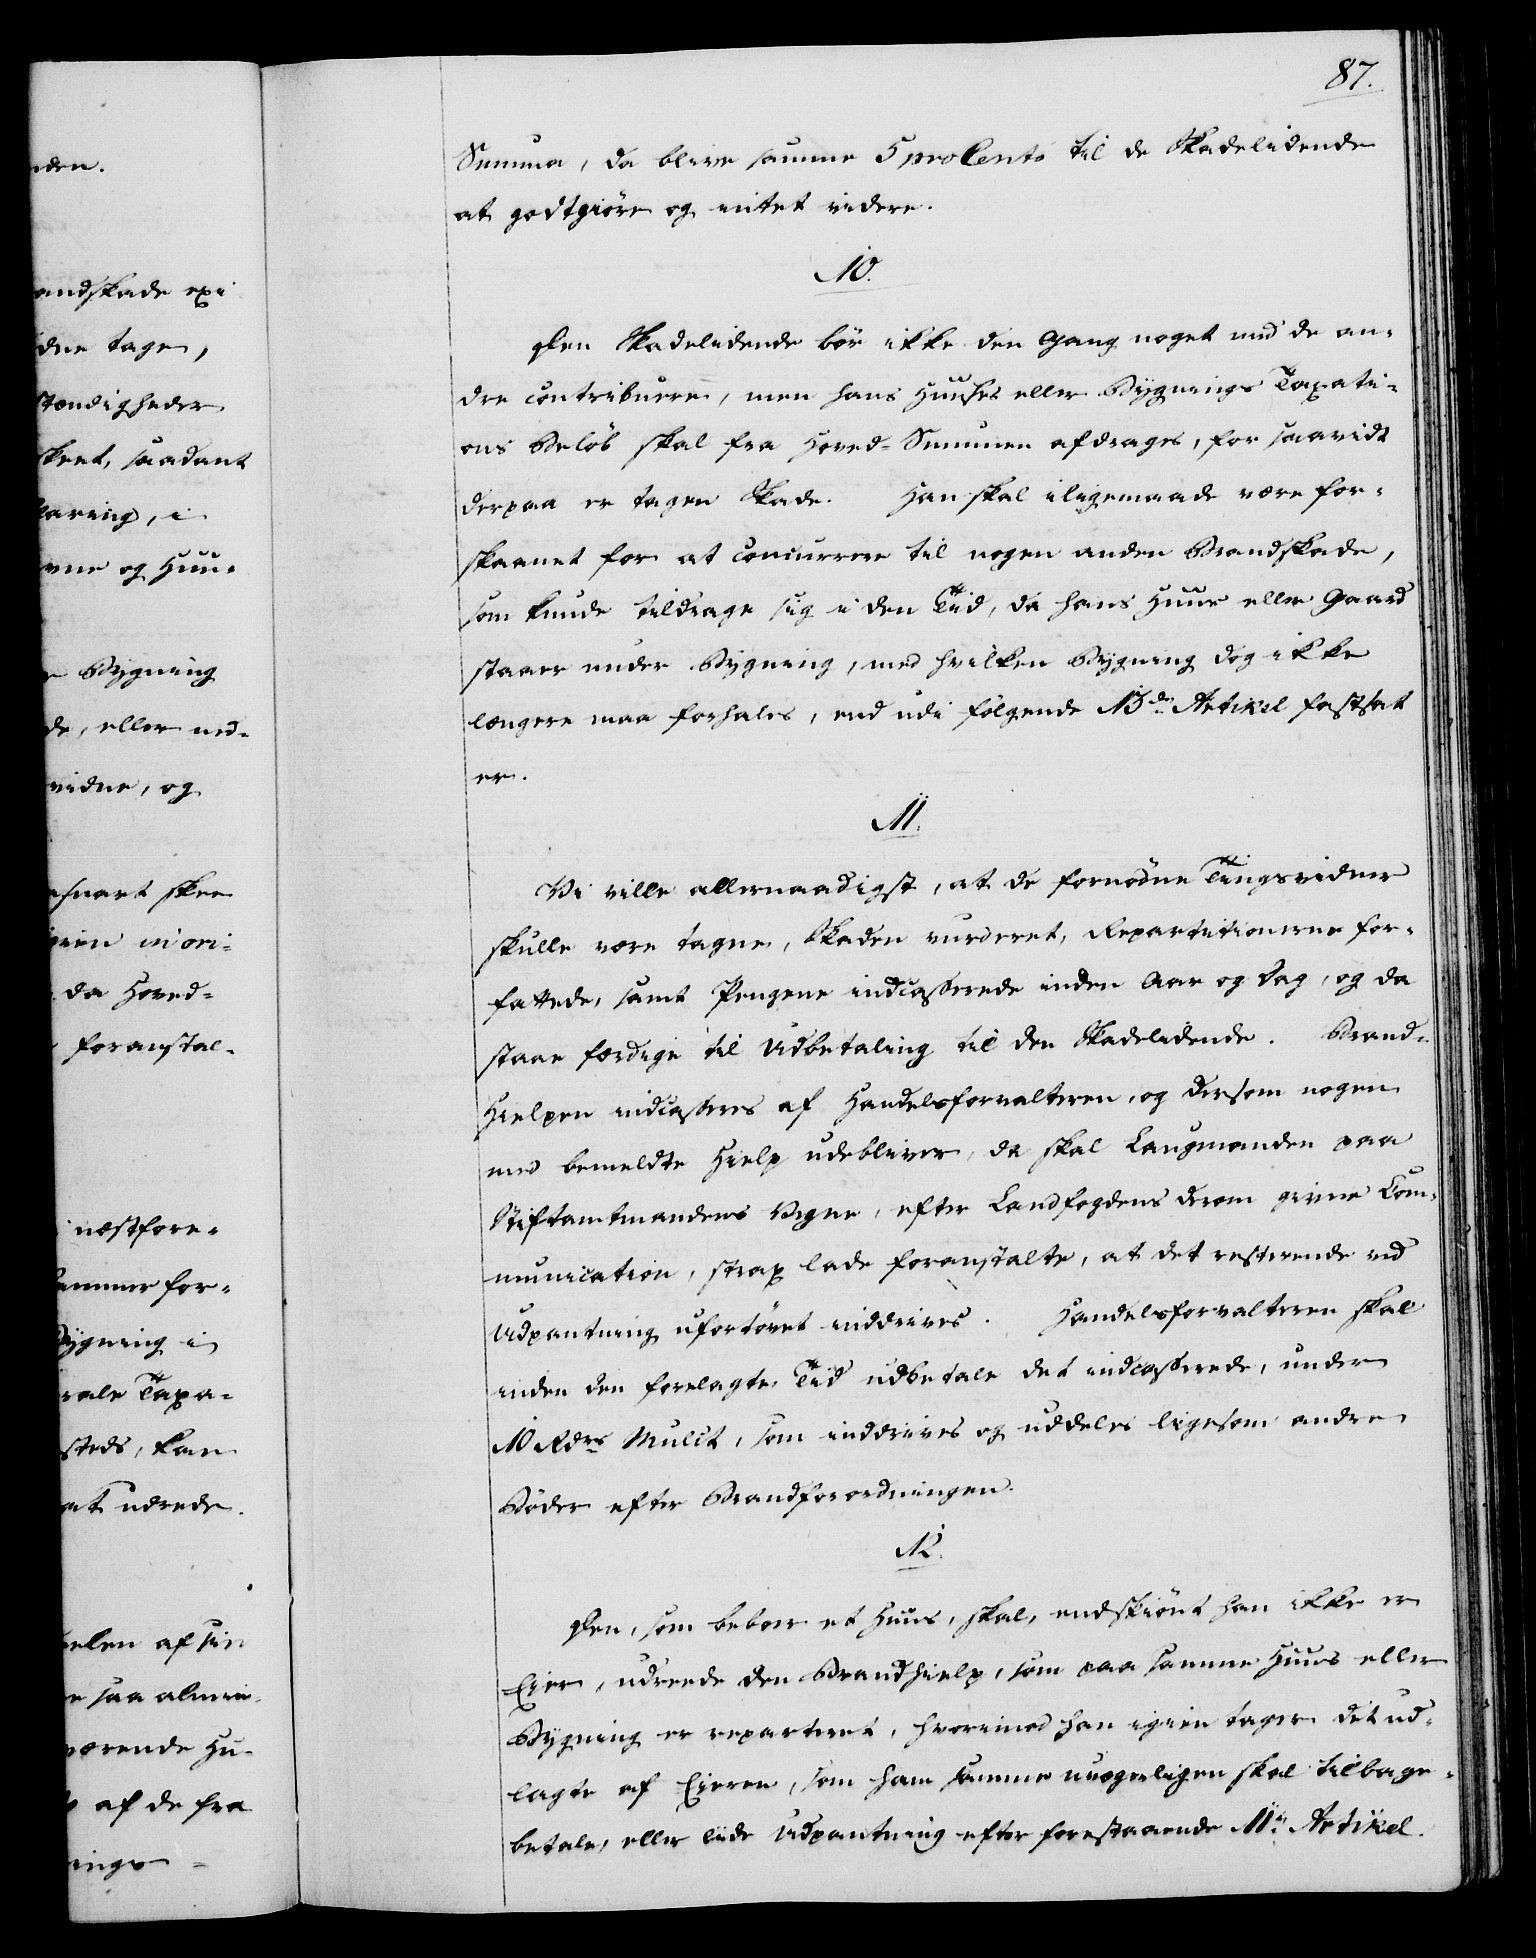 87.
Summa, da blive samme 5 pro Cento til de Skadelidende
at godtgiöre og intet videre.
10.
Den Skadelidende bör ikke den Gang noget med de an-
dre contribuere, men hans Huuses eller Bygnings Taxati-
ons Belöb skal fra Hoved-Summen afdrages, for saavidt
derpaa er tagen Skade. Han skal iligemaade være for-
skaanet for at concurrere til nogen anden Brandskade,
som kunde tildrage sig i den Tiid, da hans Huus eller Gaard
staaer under Bygning, med hvilken Bygning dog ikke
længere maa forhales, end udi fölgende 13de Artikel fastsat
er.
11.
Vi ville allernaadigst, at de fornödne Tingsvidner
skulle være tagne, Skaden vurderet, Repartitionerne for-
fattede, samt Pengene indcasserede inden Aar og Dag, og da
staae færdige til Udbetaling til den Skadelidende. Brand-
Hielpen indcasseres af Handelsforvalteren, og dersom nogen
med bemeldte Hielp udebliver, da skal Laugmanden paa
Stiftamtmandens Vegne, efter Landfogdens derom givne Com-
munication, strax lade foranstalte, at det resterende ved
Udpantning ufortövet inddrives. Handelsforvalteren skal
inden den forelagte Tiid udbetale det indcasserede, under
10 Rdrs Mulct, som inddrives og uddeles ligesom andre
Böder efter Brandforordningen.
12.
Den, som beboer et Huus, skal, endskiönt han ikke er
Eier, udreede den Brandhielp, som paa samme Huus eller
Bygning er reparteret, hvorimod han igien tager det ud-
lagte af Eieren, som ham samme uvægerligen skal tilbage-
betale, eller liide Udpantning efter forestaaende 11te Artikel.
nden.
andskade exi
dne tages,
stændigheder
skeet, saadant
laring, i
vne og Huu-
Bygning
de, eller ned-
vidne, og
asnart skee
in ori-
da Hoved-
foranstal-
næstfore-
ammer for-
Bygning i
rale Taxa-
steds, kan
at udrede.
elen af sin
e saa almin-
værende Hu-
af de fra
ings-